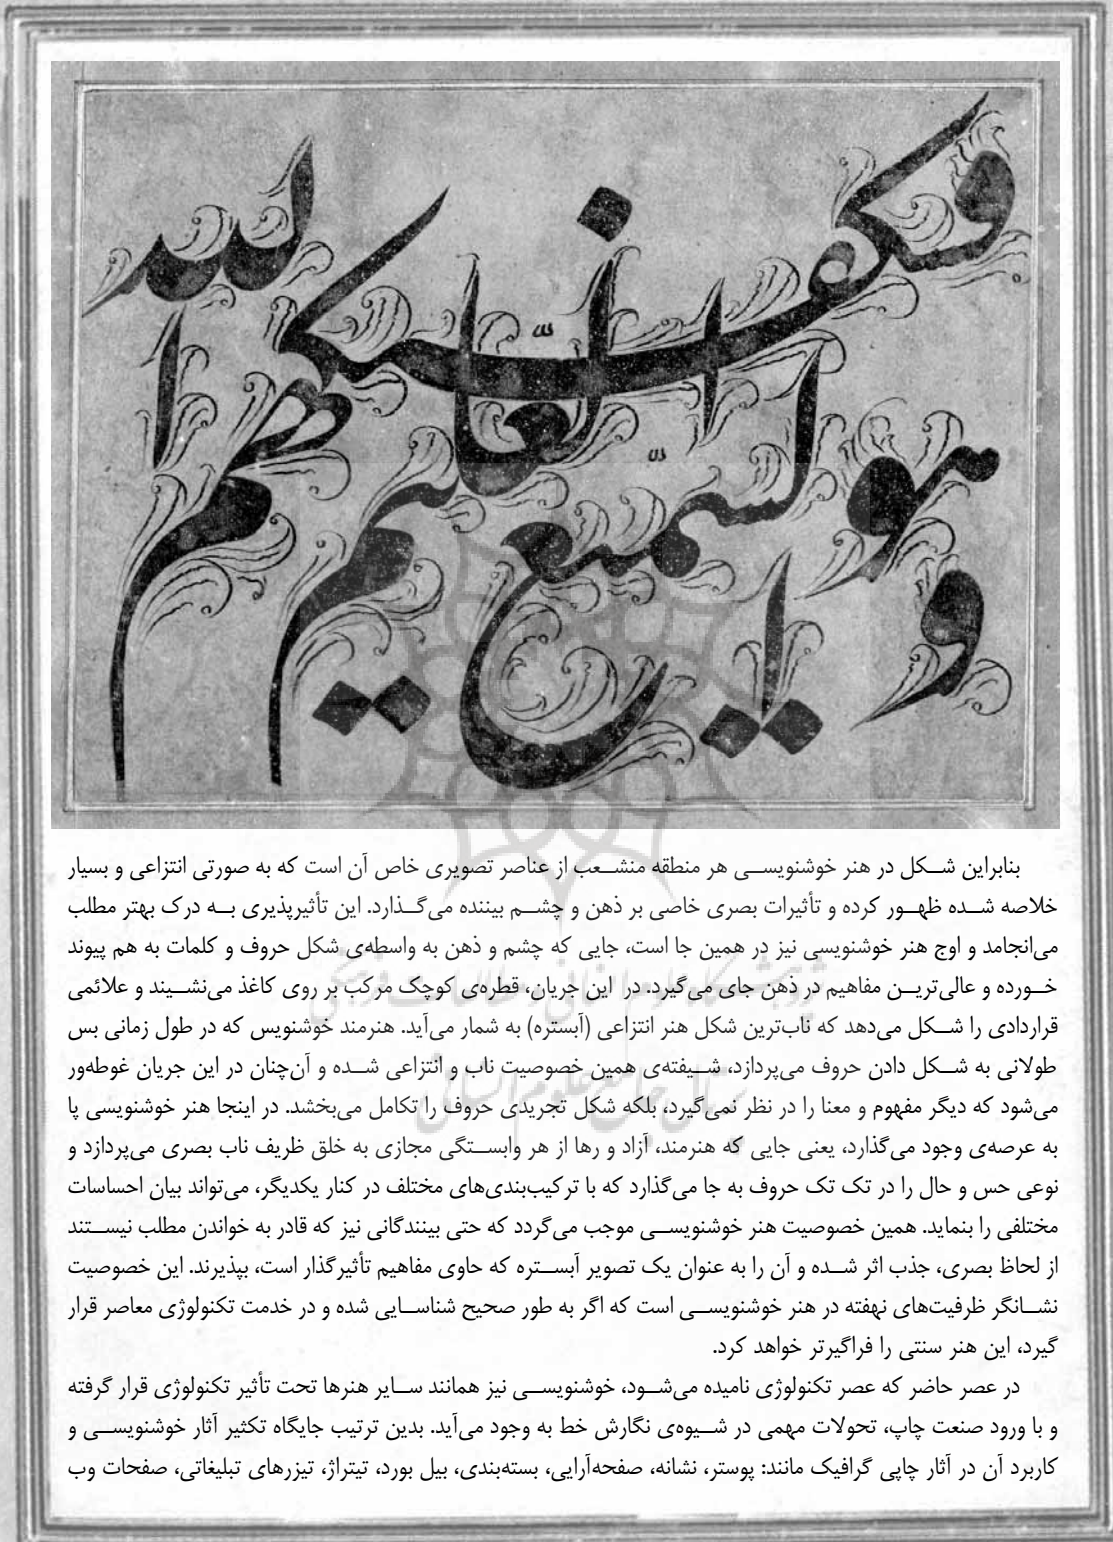 فسيكفيكهم الله
وهو السميع العليم
بنابراین شکل در هنر خوشنویسی هر منطقه منشعب از عناصر تصویری خاص آن است که به صورتی انتزاعی و بسیار
خلاصه شده ظهور کرده و تأثیرات بصری خاصی بر ذهن و چشم بیننده می‌گذارد. این تأثیرپذیری به درک بهتر مطلب
می‌انجامد و اوج هنر خوشنویسی نیز در همین جا است، جایی که چشم و ذهن به واسطه‌ی شکل حروف و کلمات به هم پیوند
خورده و عالی‌ترین مفاهیم در ذهن جای می‌گیرد. در این جریان، قطره‌ی کوچک مرکب بر روی کاغذ می‌نشیند و علائمی
قراردادی را شکل می‌دهد که ناب‌ترین شکل هنر انتزاعی (آبستره) به شمار می‌آید. هنرمند خوشنویس که در طول زمانی بس
طولانی به شکل دادن حروف می‌پردازد، شیفته‌ی همین خصوصیت ناب و انتزاعی شده و آن‌چنان در این جریان غوطه‌ور
می‌شود که دیگر مفهوم و معنا را در نظر نمی‌گیرد، بلکه شکل تجریدی حروف را تکامل می‌بخشد. در اینجا هنر خوشنویسی پا
به عرصه‌ی وجود می‌گذارد، یعنی جایی که هنرمند، آزاد و رها از هر وابستگی مجازی به خلق ظریف ناب بصری می‌پردازد و
نوعی حس و حال را در تک تک حروف به جا می‌گذارد که با ترکیب‌بندی‌های مختلف در کنار یکدیگر، می‌تواند بیان احساسات
مختلفی را بنماید. همین خصوصیت هنر خوشنویسی موجب می‌گردد که حتی بینندگانی نیز که قادر به خواندن مطلب نیستند
از لحاظ بصری، جذب اثر شده و آن را به عنوان یک تصویر آبستره که حاوی مفاهیم تأثیرگذار است، بپذیرند. این خصوصیت
نشانگر ظرفیت‌های نهفته در هنر خوشنویسی است که اگر به طور صحیح شناسایی شده و در خدمت تکنولوژی معاصر قرار
گیرد، این هنر سنتی را فراگیرتر خواهد کرد.
در عصر حاضر که عصر تکنولوژی نامیده می‌شود، خوشنویسی نیز همانند سایر هنرها تحت تأثیر تکنولوژی قرار گرفته
و با ورود صنعت چاپ، تحولات مهمی در شیوه‌ی نگارش خط به وجود می‌آید. بدین ترتیب جایگاه تکثیر آثار خوشنویسی و
کاربرد آن در آثار چاپی گرافیک مانند: پوستر، نشانه، صفحه‌آرایی، بسته‌بندی، بیل بورد، تیتراژ، تیزرهای تبلیغاتی، صفحات وب
پژوهشگاه علوم انسانی و مطالعات فرهنگی
پرتال جامع علوم انسانی